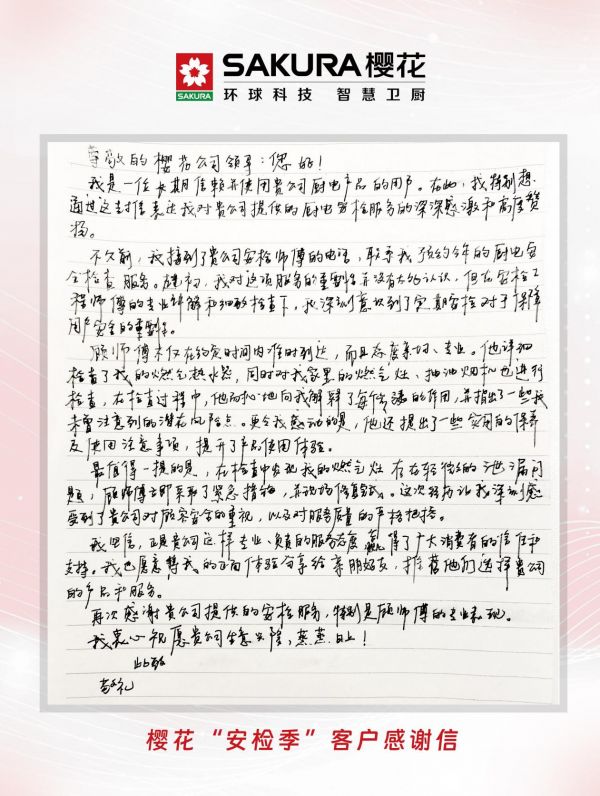 SAKURA
SAKURA樱花
环球科技 智慧卫厨
尊敬的樱花公司领导:您好!
我是一位长期信赖并使用贵公司厨电产品的用户。在此,我特别想
通过这封信表达我对贵公司提供的厨电安检服务的深深感激和高度赞
扬。
不久前,我接到了贵公司安检师傅的电话,联系我预约今年的厨电安
全检查服务。起初,我对这项服务的重要性并没有太多认识,但在安检工
程师傅的专业讲解和细致检查下,我深刻意识到了定期安检对于保障
用户安全的重要性。
顾师傅不仅在约定时间内准时到达,而且态度亲切、专业。他详细
检查了我的燃气热水器,同时对我家里的燃气灶、抽油烟机也进行
检查,在检查过程中,他耐心地向我解释了每个步骤的作用,并指出了一些我
未曾注意到的潜在风险点。更令我感动的是,他还提出了一些实用的保养
及使用注意事项,提升了产品使用体验。
最值得一提的是,在检查中发现我的燃气灶存在轻微的泄漏问
题,顾师傅立即采取了紧急措施,并现场修复完成。这次经历让我深刻感
受到了贵公司对顾客安全的重视,以及对服务质量的严格把控。
我坚信,正是贵公司这样专业、负责的服务态度赢得了广大消费者的信任和
支持。我也愿意将我的正面体验分享给亲朋好友,推荐他们选择贵公司
的产品和服务。
再次感谢贵公司提供的安检服务,特别是顾师傅的专业表现。
我衷心祝愿贵公司生意兴隆,蒸蒸日上!
此致
敬礼
樱花“安检季”客户感谢信